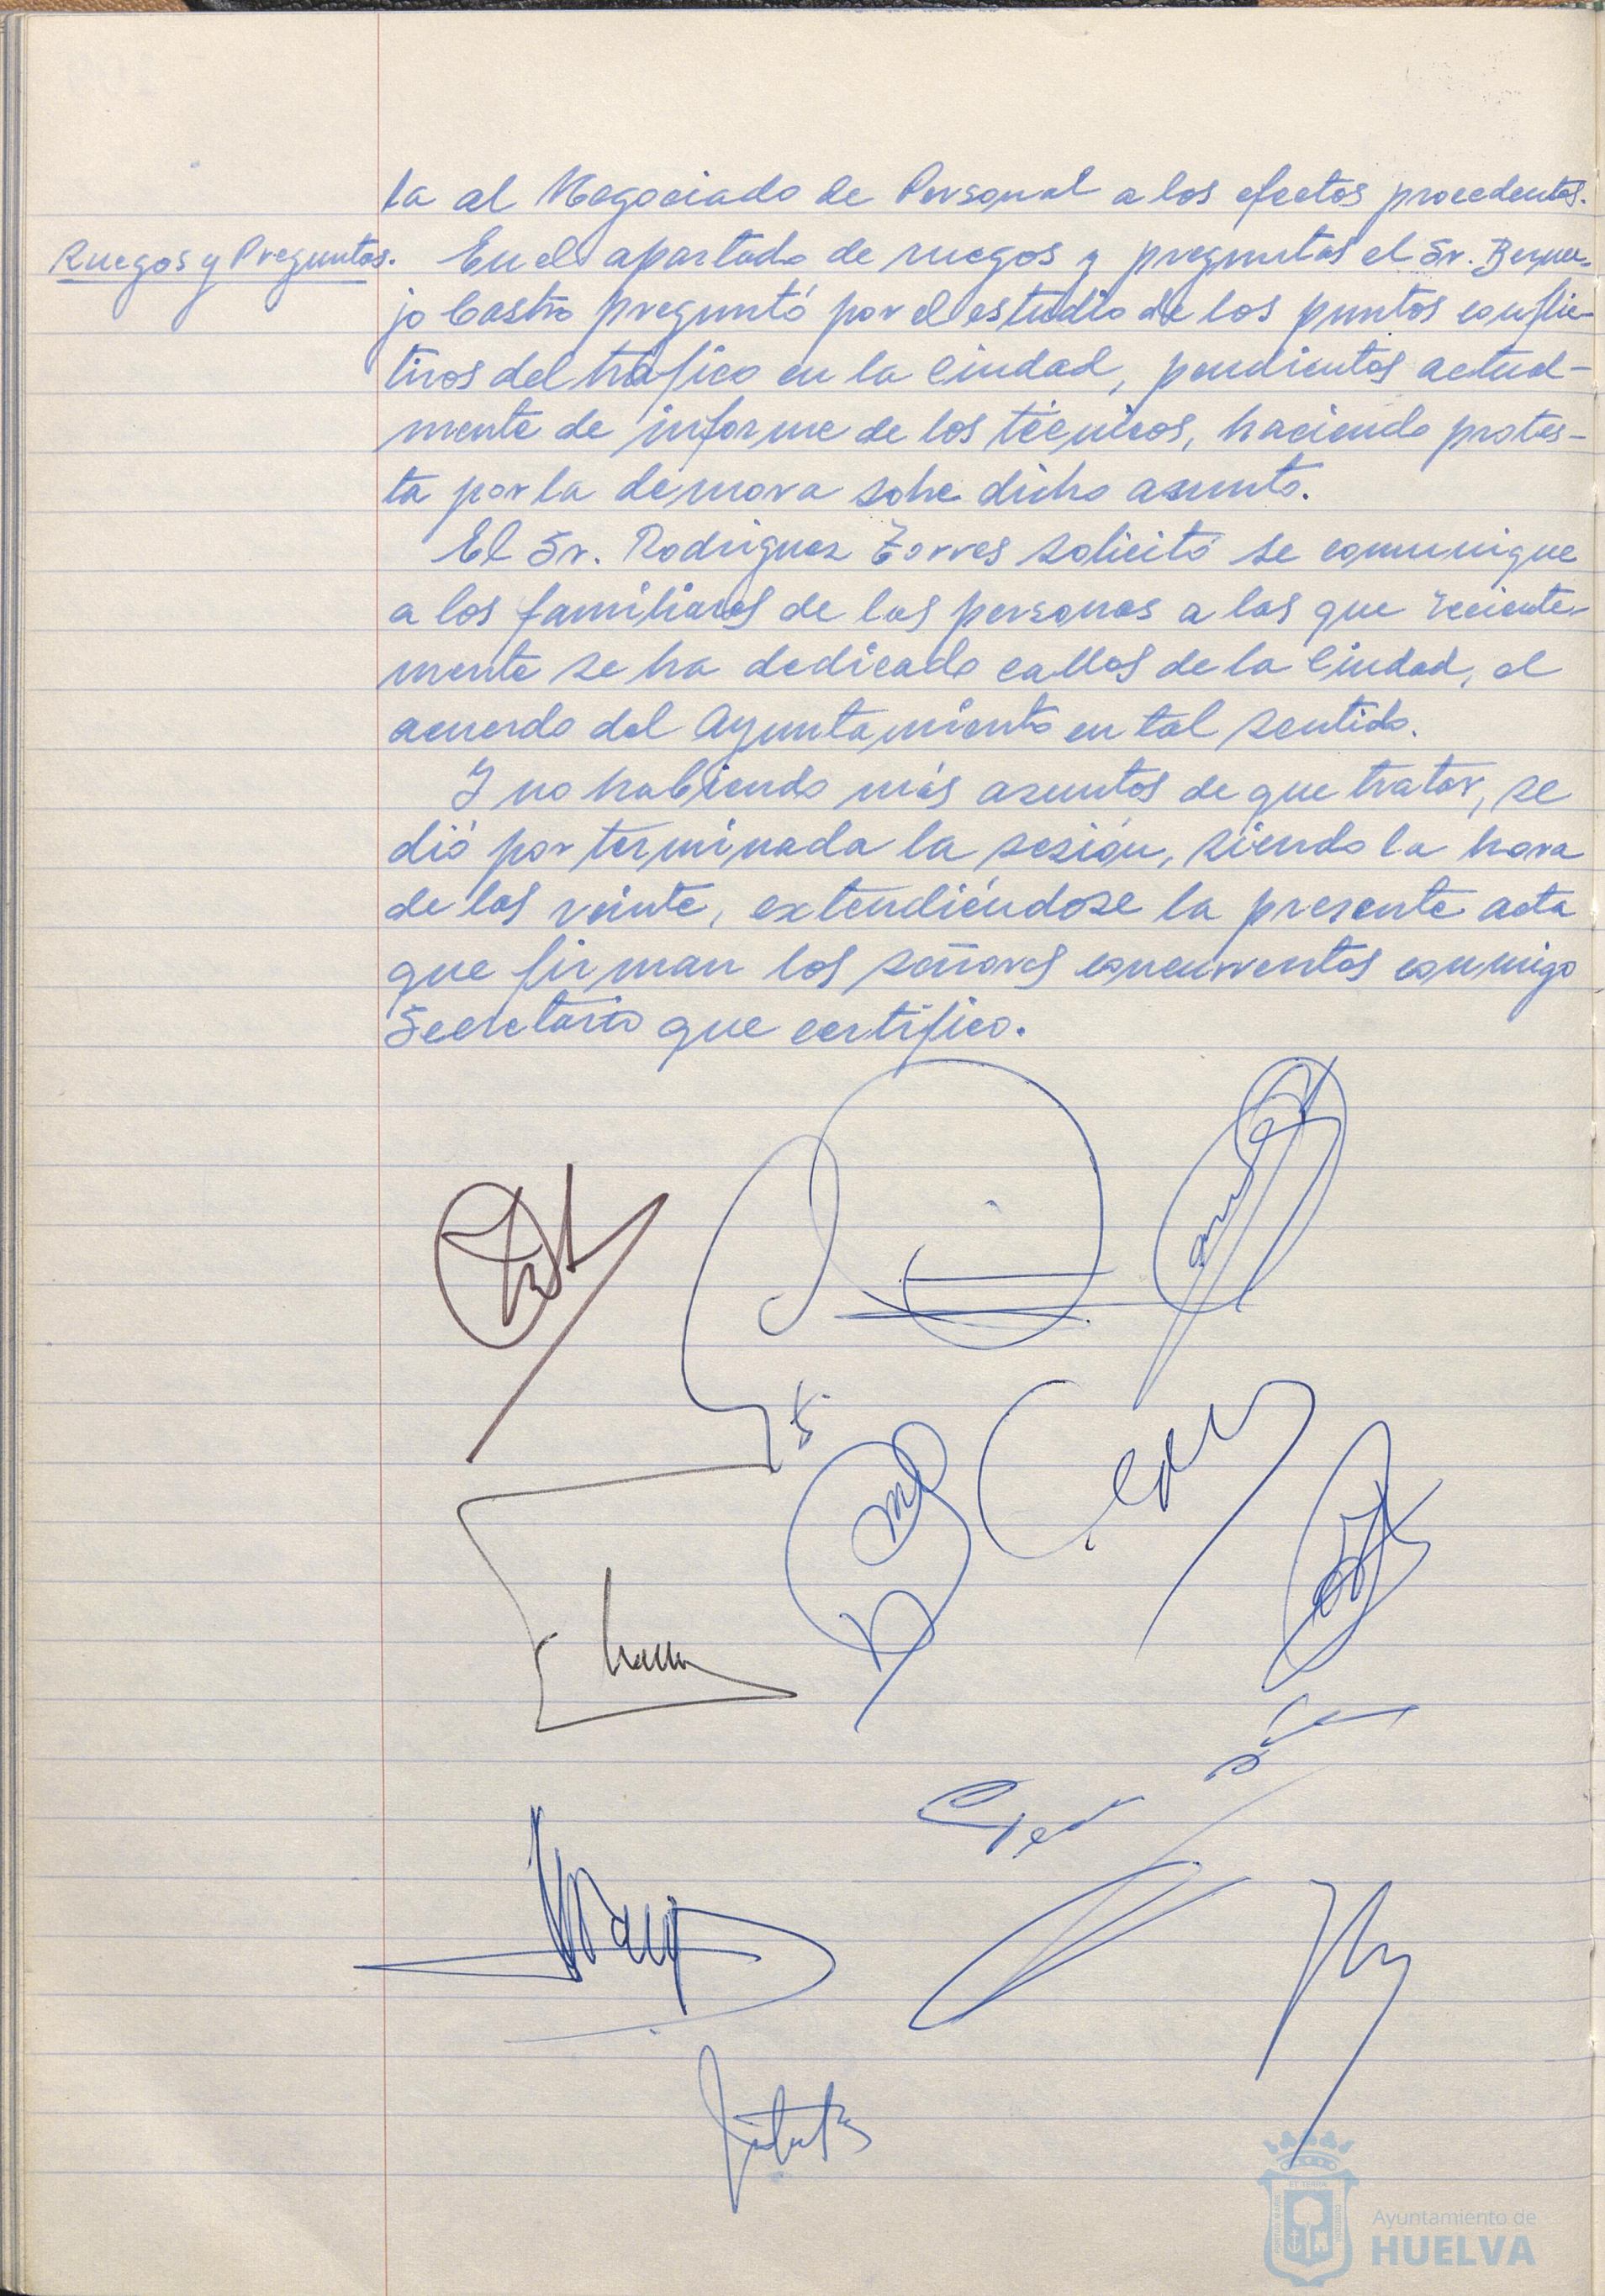 ta al Negociado de Personal a los efectos procedentes.
Ruegos y Preguntas. En el apartado de ruegos y preguntas el Sr. Bermejo
jo Castro preguntó por el estudio de los puntos conflic-
tivos del tráfico en la Ciudad, pendientes actual-
mente de informe de los técnicos, haciendo protes-
ta por la demora sobre dicho asunto.
El Sr. Rodriguez Torres solicitó se comunique
a los familiares de las personas a las que reciente-
mente se ha dedicado calles de la Ciudad, el
acuerdo del Ayuntamiento en tal sentido.
Y no habiendo más asuntos de que tratar, se
dió por terminada la sesión, siendo la hora
de las veinte, extendiéndose la presente acta
que firman los señores concurrentes conmigo
Secretario que certifico.
Ayuntamiento de
HUELVA